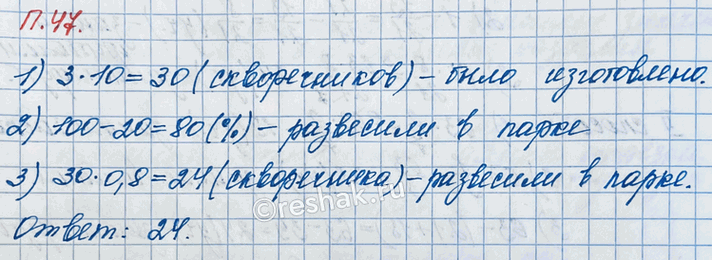 П.47.
1) 3·10=30 (скворечников) - было изготовлено.
2) 100-20=80 (%) - развесили в парке
3) 30·0,8=24 (скворечника) - развесили в парке.
©reshak.ru
Ответ: 24.